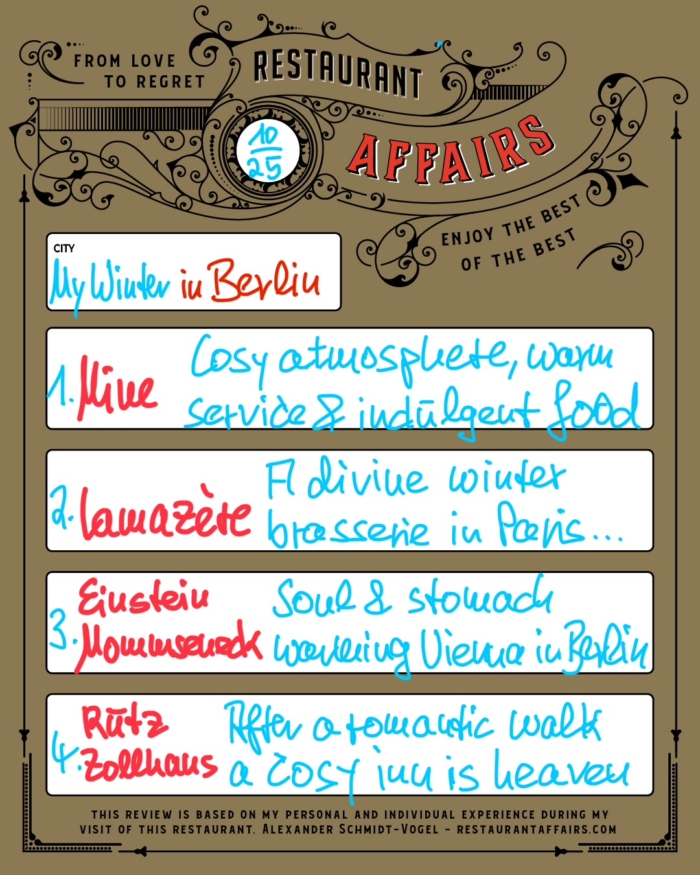 FROM LOVE
TO REGRET
RESTAURANT
AFFAIRS
10
25
ENJOY THE BEST
OF THE BEST
CITY
My Winter in Berlin
1. Mine Cosy atmosphere, warm
service & indulgent food
2. Lamazère A divine winter
brasserie in Paris...
3. Einstein Soul & stomach
Mommseneck warming Vienna in Berlin
4. Rutz After a romantic walk
Zollhaus a cosy inn is heaven
THIS REVIEW IS BASED ON MY PERSONAL AND INDIVIDUAL EXPERIENCE DURING MY
VISIT OF THIS RESTAURANT. ALEXANDER SCHMIDT-VOGEL – RESTAURANTAFFAIRS.COM